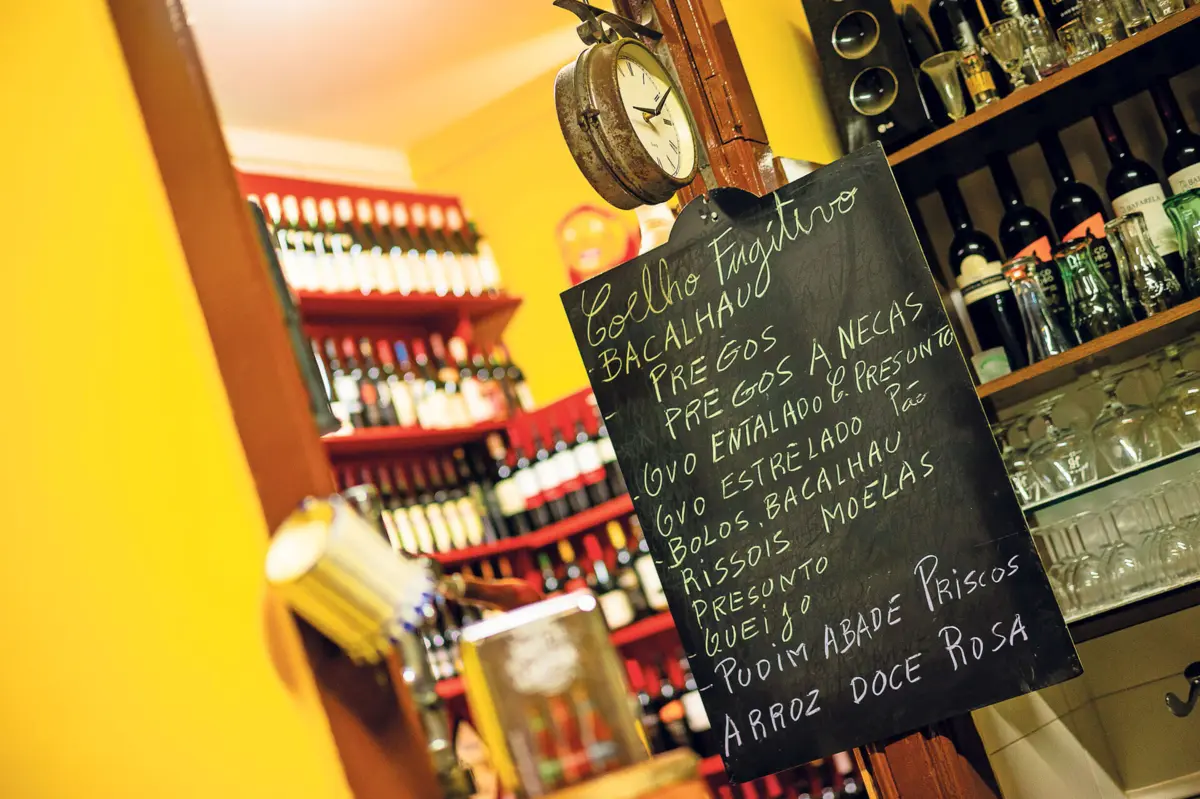 Coelho Fugitivo
- BACALHAU
PREGOS
- PREGOS À NECAS
- OVO ENTALADO C. PRESUNTO
OVO ESTRELADO Pão
- BOLOS. BACALHAU
RISSOIS MOELAS
PRESUNTO
QUEIJO
- PUDIM ABADE PRISCOS
ARROZ DOCE ROSA